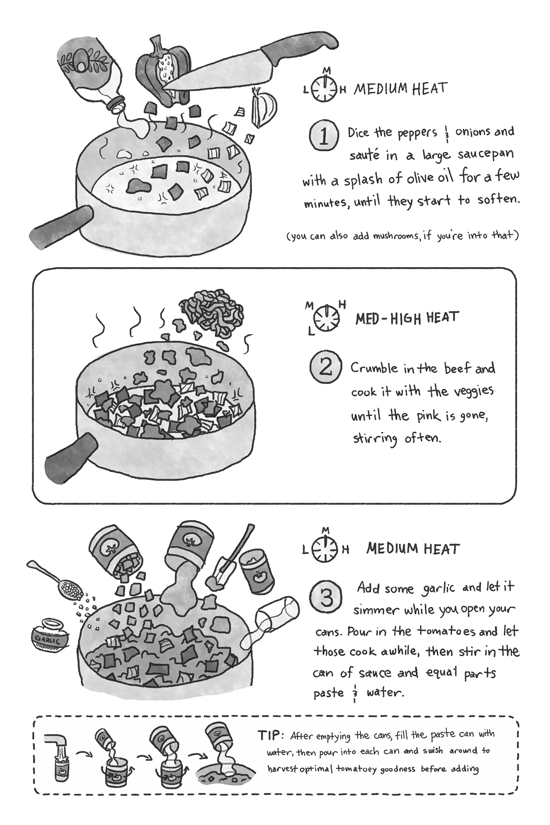 M
L H MEDIUM HEAT
1 Dice the peppers & onions and
sauté in a large saucepan
with a splash of olive oil for a few
minutes, until they start to soften.
(you can also add mushrooms, if you're into that)
M H
L MED-HIGH HEAT
2 Crumble in the beef and
cook it with the veggies
until the pink is gone,
stirring often.
M
L H MEDIUM HEAT
3 Add some garlic and let it
simmer while you open your
cans. Pour in the tomatoes and let
those cook awhile, then stir in the
can of sauce and equal parts
paste & water.
GARLIC
TIP: After emptying the cans, fill the paste can with
water, then pour into each can and swish around to
harvest optimal tomatoey goodness before adding